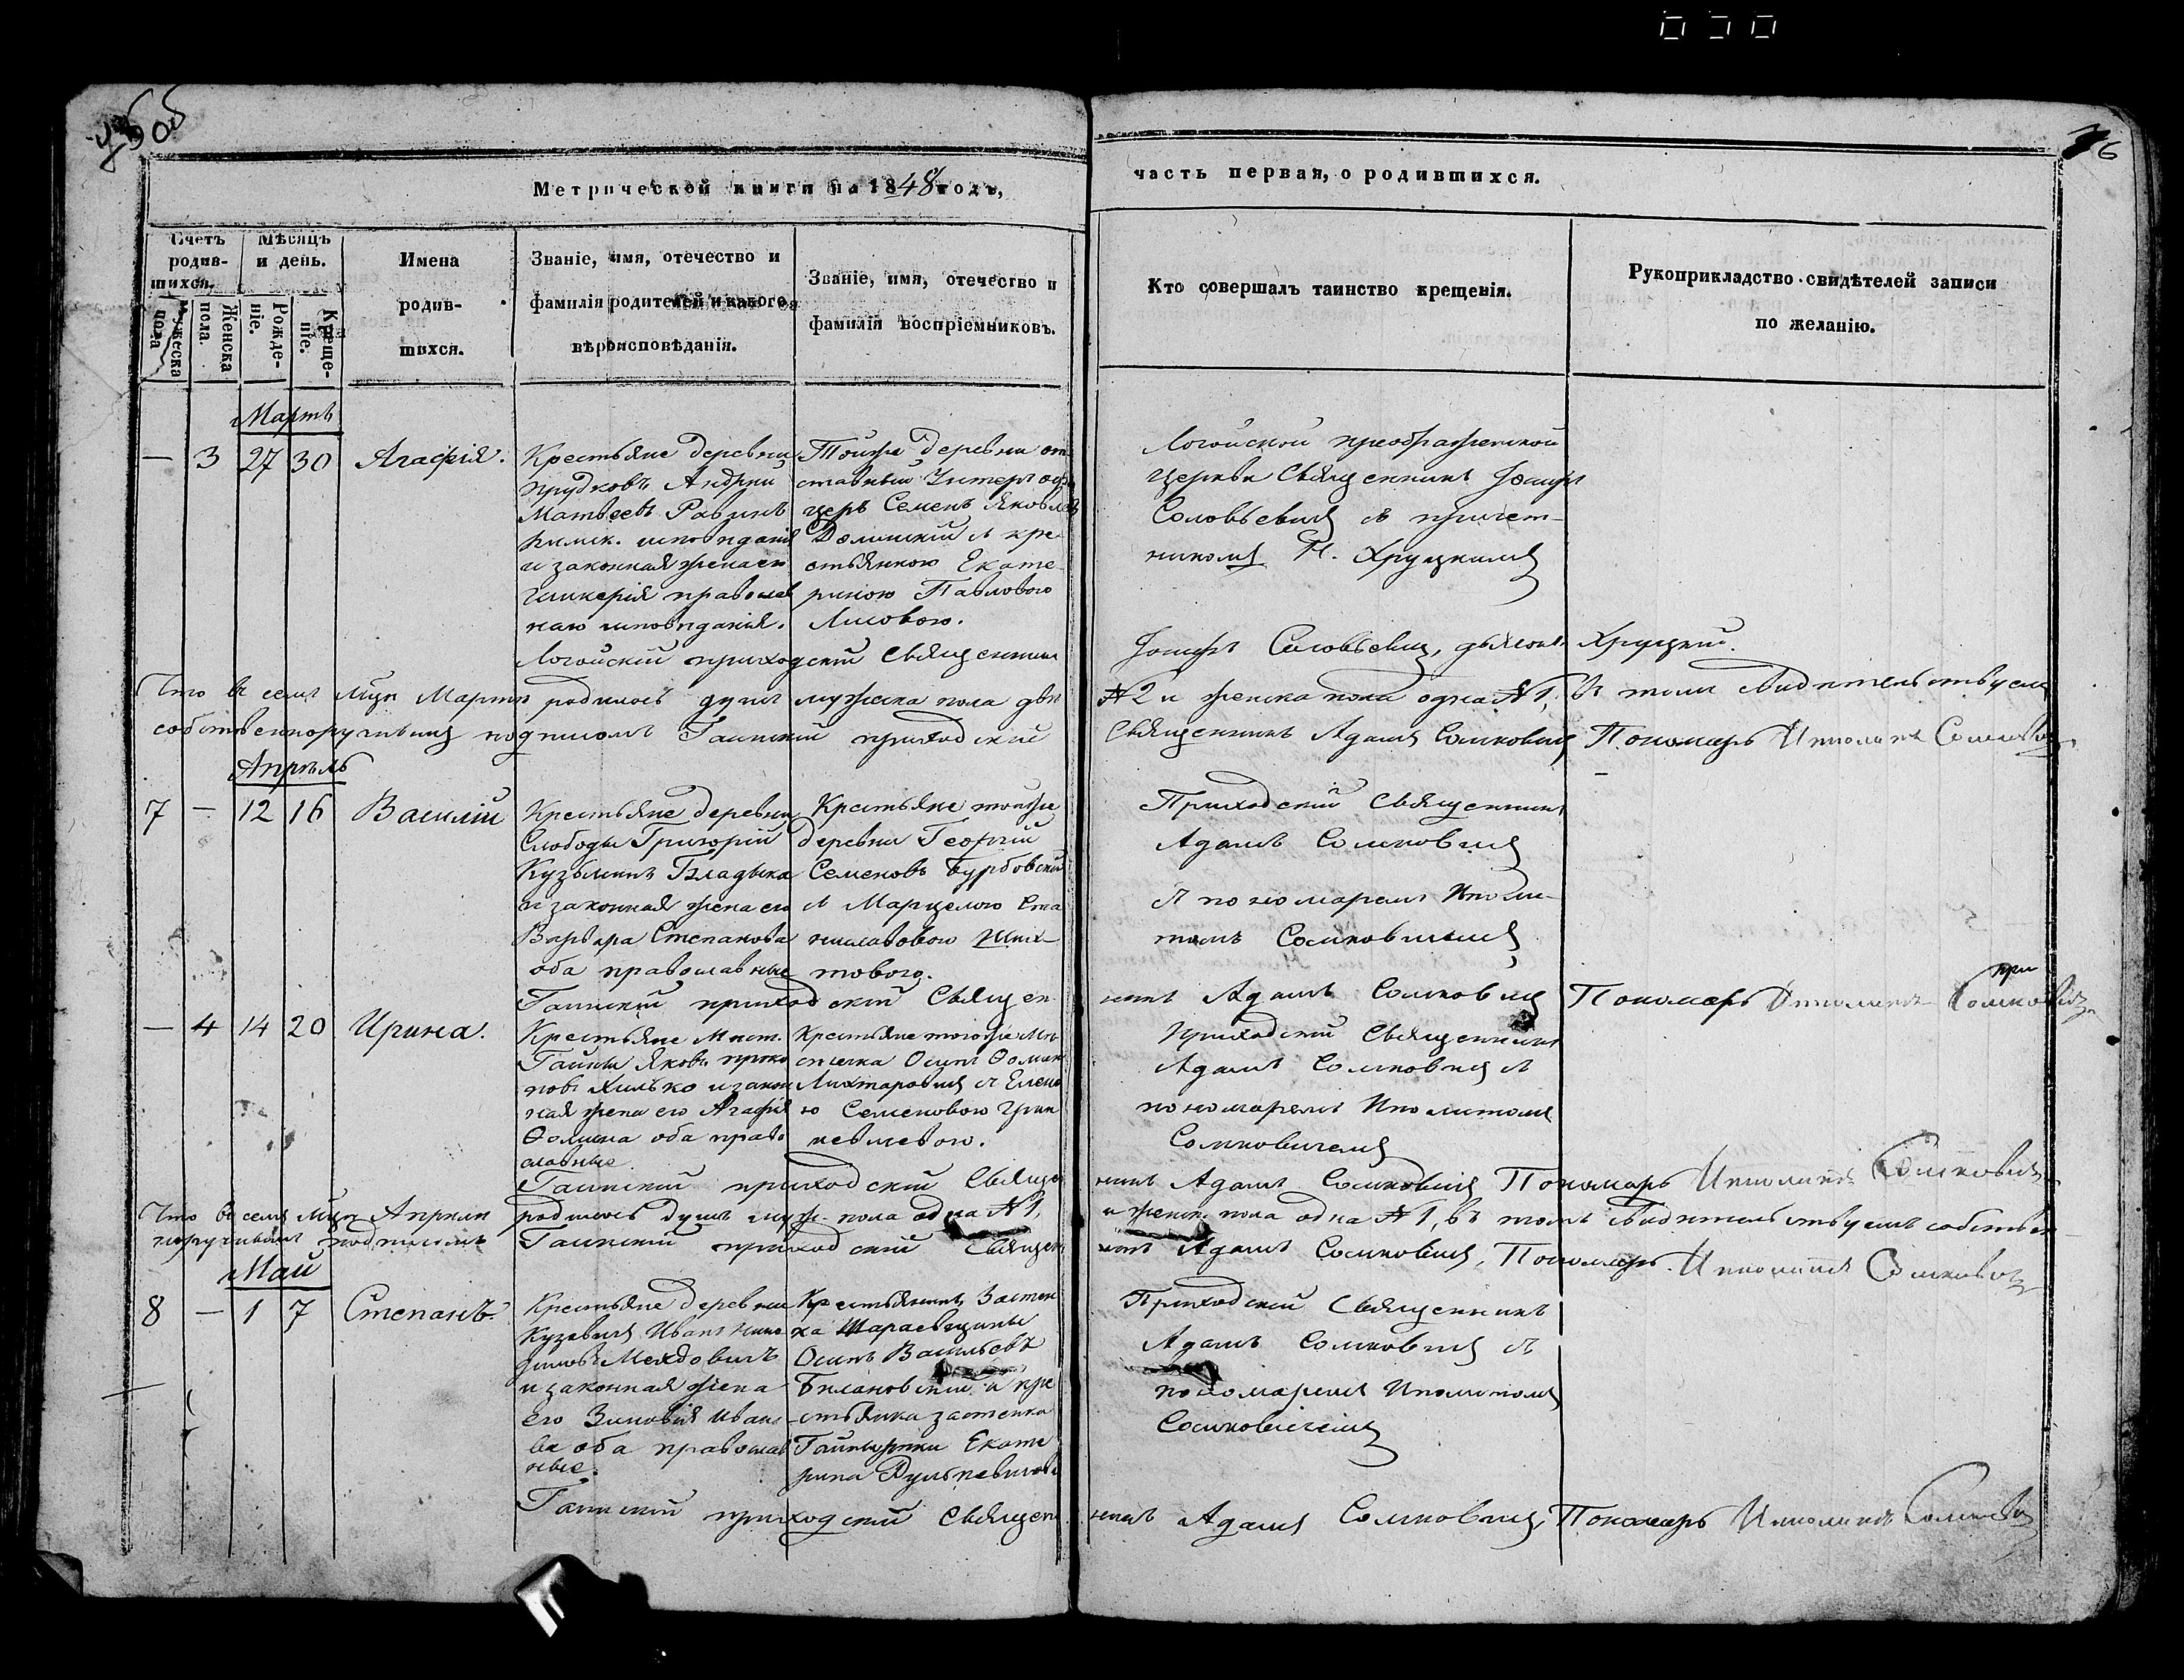 Метрической книги на 1848 годъ,
часть первая, о родившихся.
Счетъ родив-шихся.
Мѣсяцъ и день.
Мужеска пола
Женска пола.
Рожде-ніе.
Креще-ніе.
Имена
родив-
шихся.
Званіе, имя, отечество и
фамилія родителей и какого
вѣроисповѣданія.
Званіе, имя, отечество и
фамилія воспріемниковъ.
Кто совершалъ таинство крещенія.
Рукоприкладство свидѣтелей записи
по желанію.
Мартъ
— 3 27 30 Агафія.
Крестьяне деревни
Прудковъ Андрей
Матвеевъ
римск. исповѣданія
и законная жена его
Гликерія православ
наго исповѣданія.
Тойже деревни от
ставный Унтеръ офи
церъ Семенъ Яковлевъ
Долинскій съ кре
стьянкою Екате
риною Павловою
Лисовою.
Логойской преображенской
церкви Священникъ Іосифъ
Соловьевичъ съ причет-
никомъ Н. Хруцкимъ
Логойскій приходскій Священникъ
Іосифъ Соловьевичъ, дьячокъ Хруцкій.
Что въ семъ м-цѣ Мартѣ родилось душъ мужеска пола двѣ
№ 2 и женска пола одна № 1, въ томъ свидѣтельствуемъ
собственноручнымъ подписомъ Гаинскій приходскій
Священникъ Адамъ Сомковичъ Пономарь Ипполитъ Сомковичъ
Апрѣль
7 — 12 16 Василій
Крестьяне деревни
Слободы Григорій
Кузьминъ Владыка
и законная жена его
Варвара Степанова
оба православные
Крестьяне тойже
деревни Георгій
Семеновъ Бурбовскій
съ Марцелою Ста
ниславовою Ших-
товою.
Приходскій Священникъ
Адамъ Сомковичъ
съ пономаремъ Иполи-
томъ Сомковичемъ
Гаинскій приходскій Священ
никъ Адамъ Сомковичъ Пономарь Ипполитъ Сомковичъ
— 4 14 20 Ирина.
Крестьяне Мѣст.
Гайны Яковъ Проко
повъ Хилько и закон
ная жена его Агафія
Ѳомина оба право
славные.
Крестьяне тогоже Мѣ
стечка Осипъ Ѳомин
Лихтаровичъ съ Елено
ю Семеновою
Приходскій Священникъ
Адамъ Сомковичъ съ
пономаремъ Иполитомъ
Сомковичемъ
Гаинскій приходскій Священ
никъ Адамъ Сомковичъ Пономарь Ипполитъ Сомковичъ
Что въ семъ м-цѣ Апрѣлѣ родилось душъ муж. пола одна № 1,
и женск. пола одна № 1, въ томъ свидѣтельствуемъ собствен
норучнымъ подписомъ Гаинскій приходскій Священ
никъ Адамъ Сомковичъ, Пономарь Ипполитъ Сомковичъ
Май
8 — 1 7 Степанъ.
Крестьяне деревни
Кузевичъ Иванъ Нико
димовъ Мехдовичъ
и законная жена
его Зиновія Ивано
ва оба православ
ные.
Крестьянинъ Застен
ка Шараевщины
Осипъ Васильевъ
Билановскій и кре
стьянка застенка
Екате
рина
Приходскій Священникъ
Адамъ Сомковичъ съ
пономаремъ Иполитомъ
Сомковичемъ
Гаинскій приходскій Священ
никъ Адамъ Сомковичъ, Пономарь Ипполитъ Сомковичъ